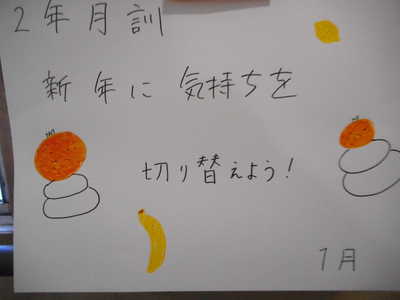 2年月訓
新年に気持ちを
切り替えよう！
1月